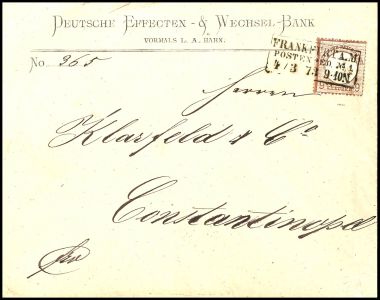 DEUTSCHE EFFECTEN- & WECHSEL-BANK
VORMALS L. A. HAHN.
No 365
FRANKFURT A.M.
POSTEXPED. No 1
4/3 73 9-10N
Herren
Klarfeld & Co
Constantinopel